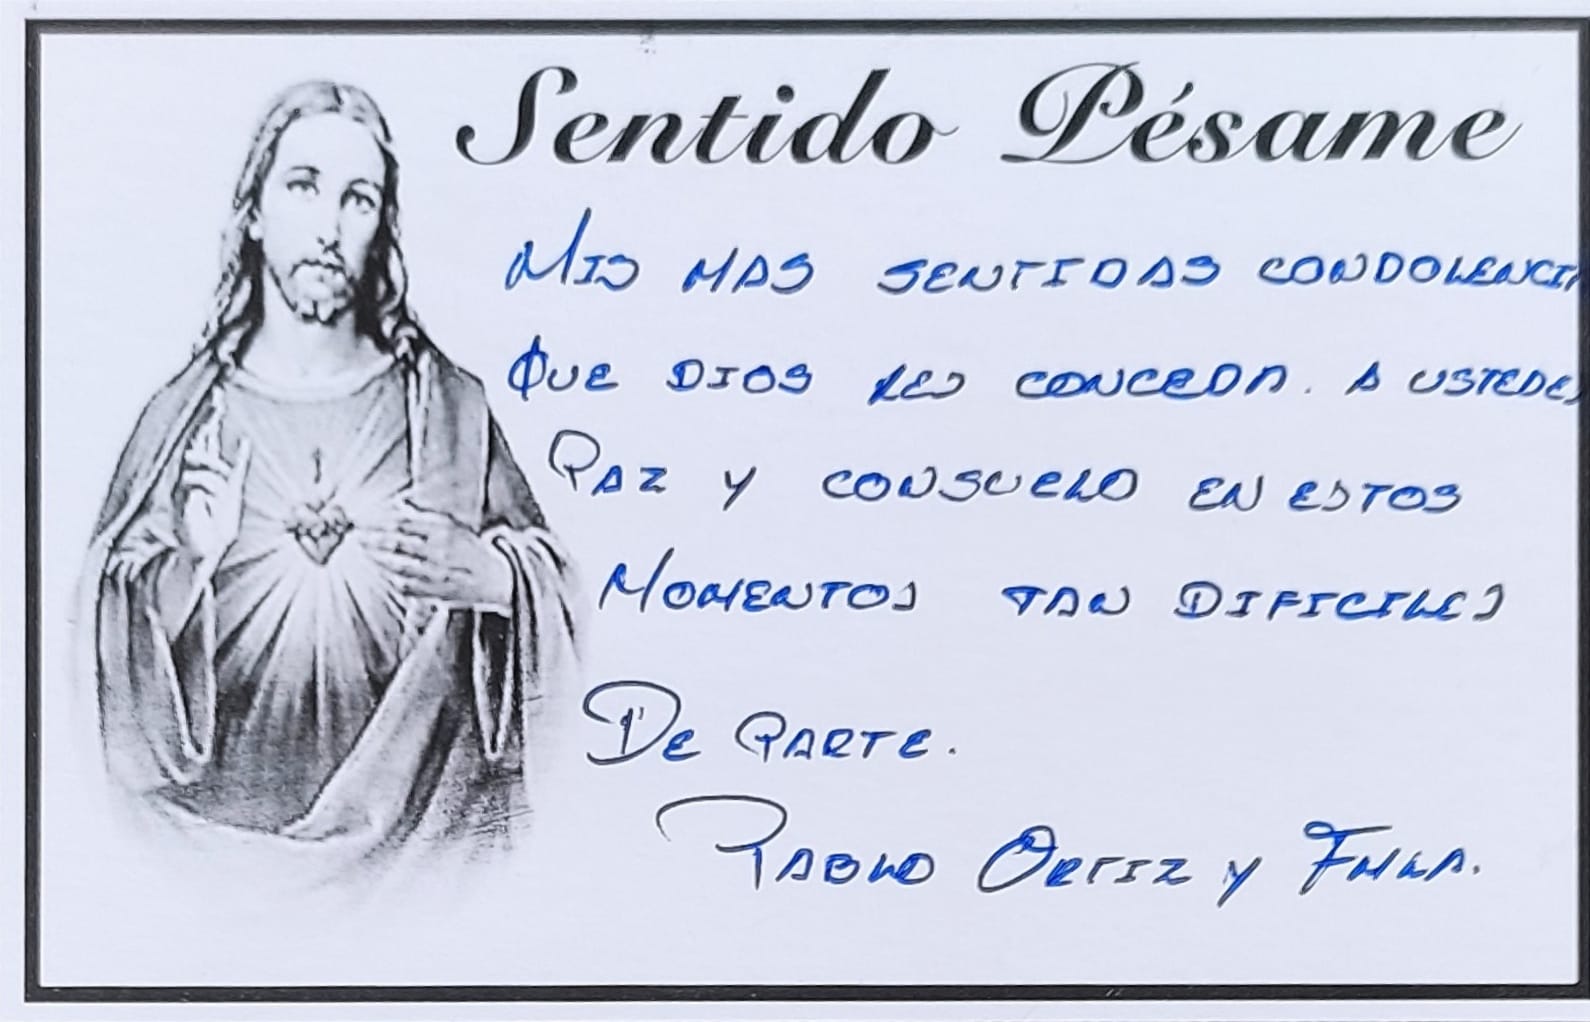 Sentido Pésame
MIS MAS SENTIDAS CONDOLENCIA
QUE DIOS LES CONCEDA. A USTEDES
PAZ Y CONSUELO EN ESTOS
MOMENTOS TAN DIFICILES
DE PARTE.
PABLO ORTIZ Y FMLA.